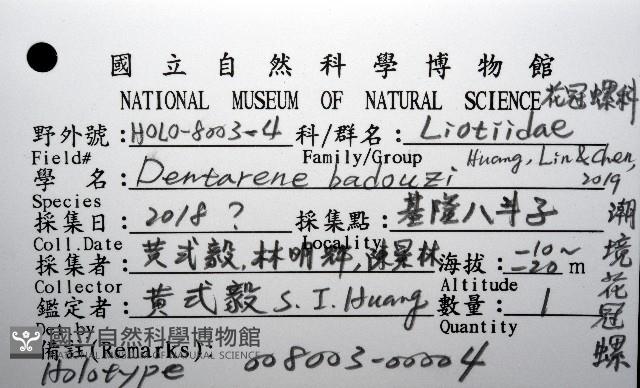 國立自然科學博物館
NATIONAL MUSEUM OF NATURAL SCIENCE 花冠螺科
野外號：HOLO-8003-4 科/群名：Liotiidae
Field# Family/Group Huang, Lin & Chen, 2019
學 名：Dentarene badouzi
Species
採集日：2018 ? 採集點：基隆八斗子
Coll.Date Locality
採集者：黄式毅, 林明輝, 陳杲林 海拔：-10~-20 m
Collector Altitude
鑑定者：黄式毅 S. I. Huang 數量：1
Det.by Quantity
備註(Remarks)：
Holotype 008003-00004
潮境花冠螺
國立自然科學博物館
NATIONAL MUSEUM OF NATURAL SCIENCE